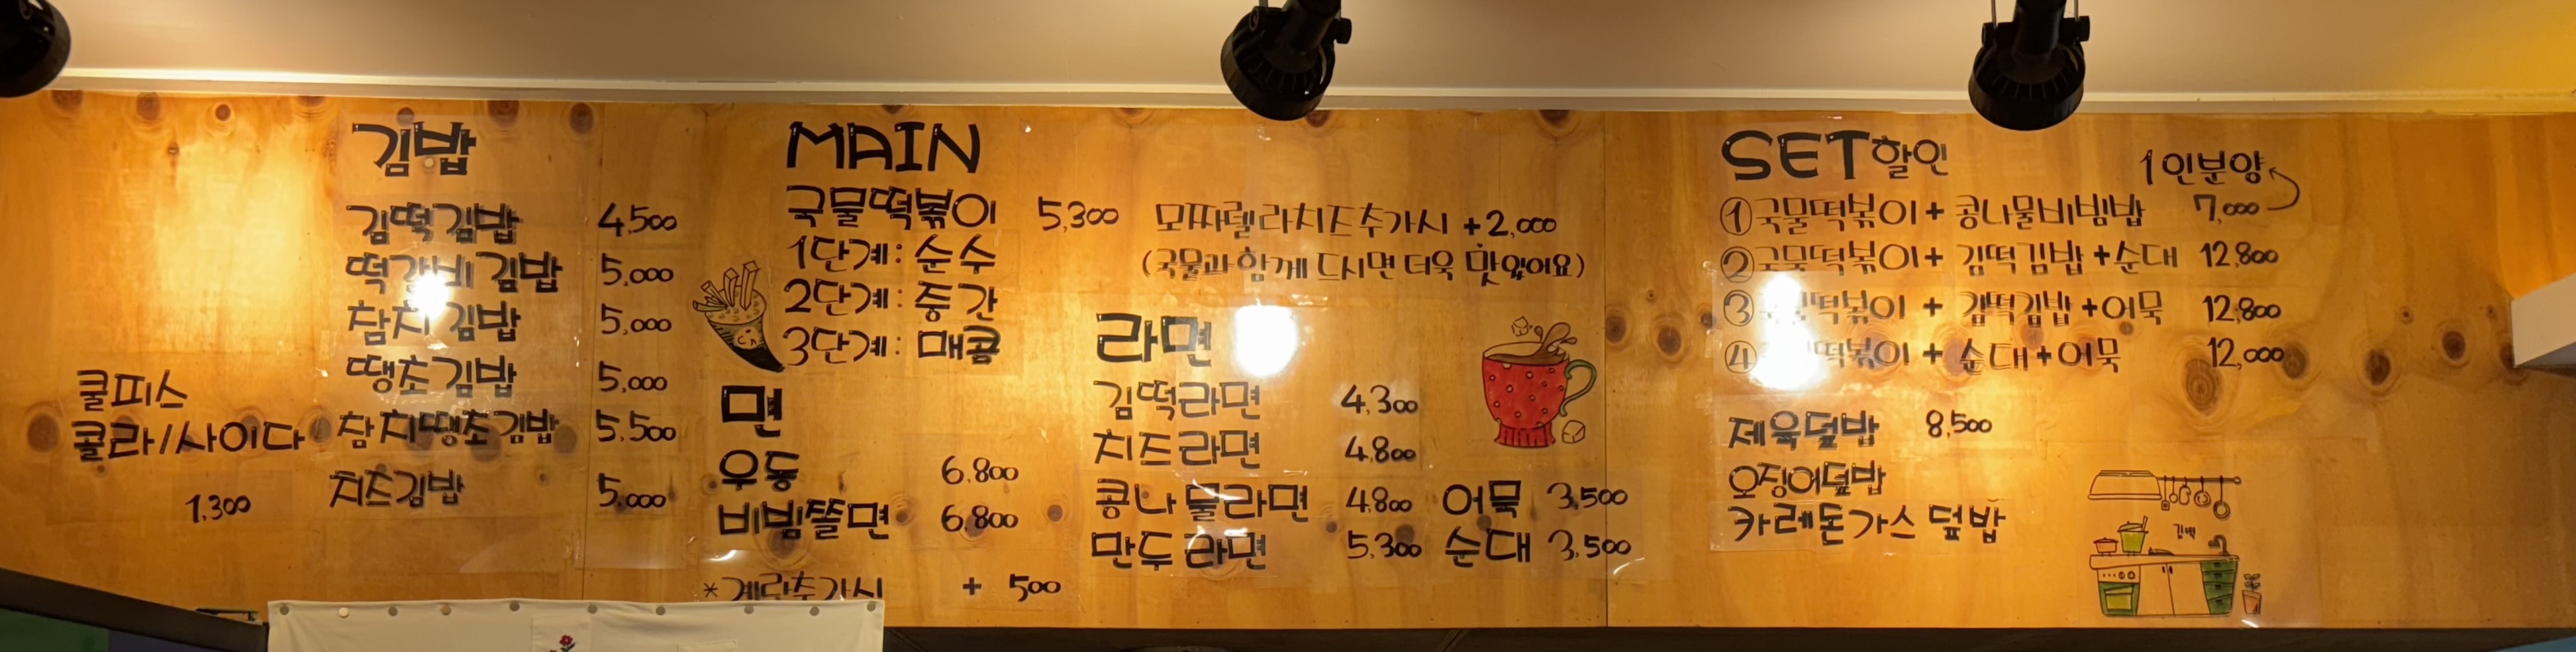 김밥
김떡김밥 4,500
떡갈비김밥 5,000
참치김밥 5,000
땡초김밥 5,000
참치땡초김밥 5,500
치즈김밥 5,000
쿨피스
콜라/사이다
1,300
MAIN
국물떡볶이 5,300 모짜렐라치즈추가시 +2,000
1단계: 순수 (국물과 함께 드시면 더욱 맛있어요)
2단계: 중간
3단계: 매콤
면
우동 6,800
비빔쫄면 6,800
*계란추가시 + 500
라면
김떡라면 4,300
치즈라면 4,800
콩나물라면 4,800
만두라면 5,300
어묵 3,500
순대 3,500
SET할인
1인분양
①국물떡볶이+ 콩나물비빔밥 7,000
②국물떡볶이+ 김떡김밥+순대 12,800
③ 떡볶이 + 김떡김밥+어묵 12,800
④ 떡볶이 + 순대+어묵 12,000
제육덮밥 8,500
오징어덮밥
카레돈가스덮밥
김떡